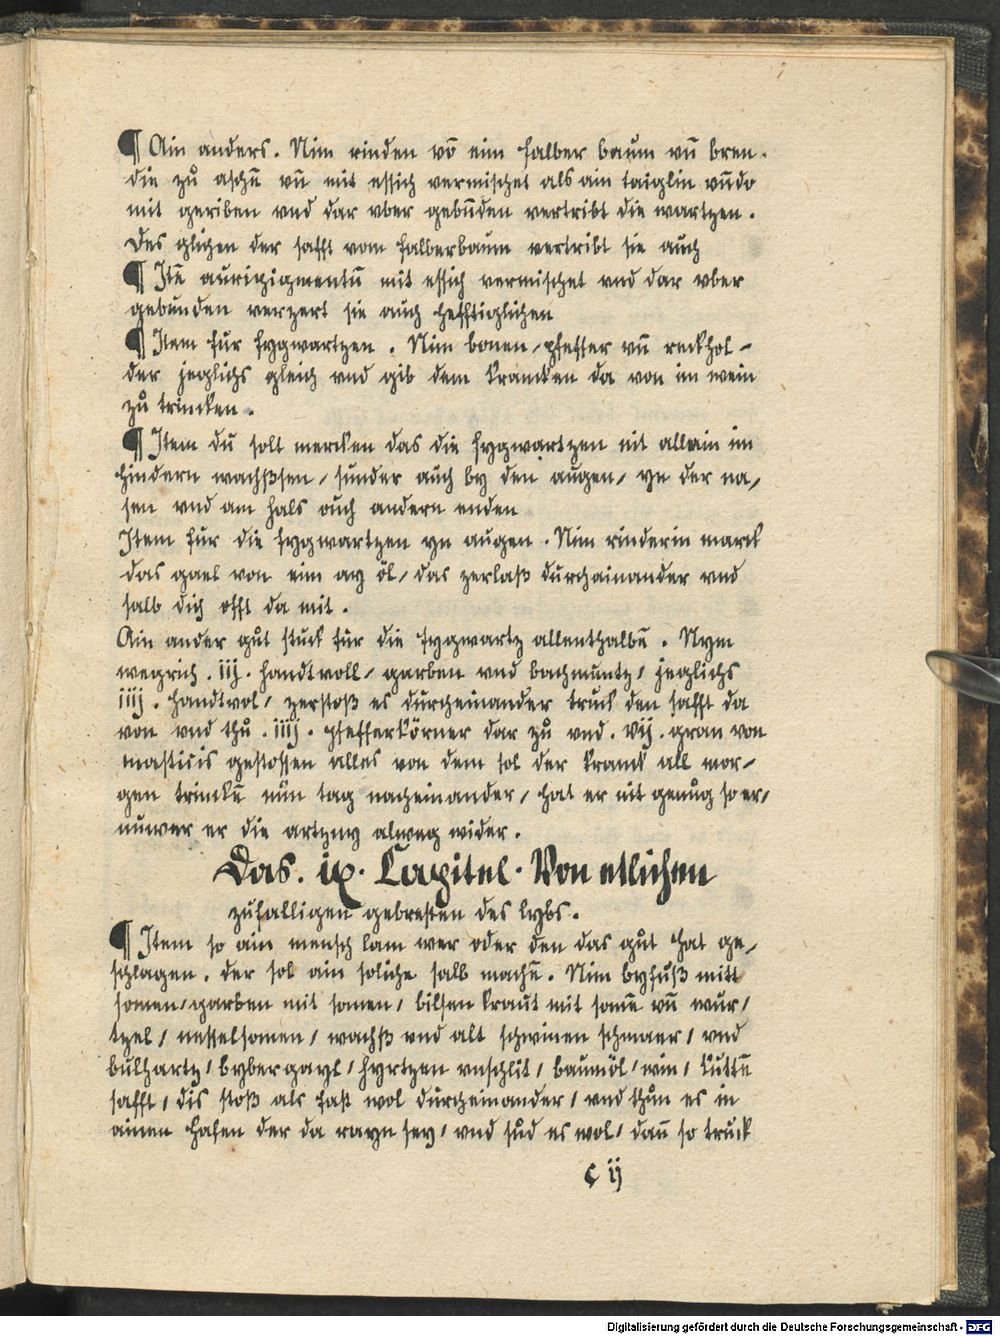 ¶ Ain anders. Nim rinden vō eim falber baum vn̄ bren.
die zů aschē vn̄ mit essich vermischet als ain taiglin vn̄ do
mit geriben vnd dar vber gebūden vertribt die wartzen.
Des glichen der safft vom falberbaum vertribt sie auch
¶ Itē auripigmentū mit essich vermischet vnd dar vber
gebunden verzert sie auch hefftiglichen
¶ Item für fygwartzen. Nim bonen/pfeffer vn̄ reckhol-
der jeglichs gleich vnd gib dem krancken da von im wein
zů trincken.
¶ Item du solt mercken das die fygwartzen nit allain im
hindern wachßsen/ sunder auch by den augen/ yn der na/
sen vnd am hals ouch andern enden
Item für die fygwartzen yn augen. Nim rinderin marck
das gael von eim ay öl/ das zerlaß durchainander vnd
salb dich offt da mit.
Ain ander gůt stuck für die fygwartz allenthalbē. Nym
wegrich. iij. handtvoll/ garben vnd bachmuntz/ jeglichs
iiij. handtvol/ zerstoß es durcheinander truck den safft da
von vnd thů. iiij. pfefferkörner dar zů vnd. vij. gran von
masticis gestossen alles von dem sol der kranck all mor/
gen trinckē nün tag nacheinander/ hat er nit genůg so er/
nuwer er die artzny alweg wider.
Das. ix. Capitel. Von etlichen
zufalligen gebresten des lybs.
¶ Item so ain mensch lam wer oder den das gůt hat ge/
schlagen. der sol ain soliche salb machē. Nim byfůß mitt
somen/garben mit somen/ bilsen kraut mit somē vn̄ wur/
tzel/ nesselsomen/ wachß vnd alt schwinen schmaer/ vnd
bulhartz/ bybergayl/ hyrtzen vnschlit/ baumöl/ win/ kuttē
safft/ dis stoß als fast wol durcheinander/ vnd thůn es in
ainen hafen der da rayn sey/ vnd süd es wol/ dan̄ so truck
c ij
Digitalisierung gefördert durch die Deutsche Forschungsgemeinschaft - DFG